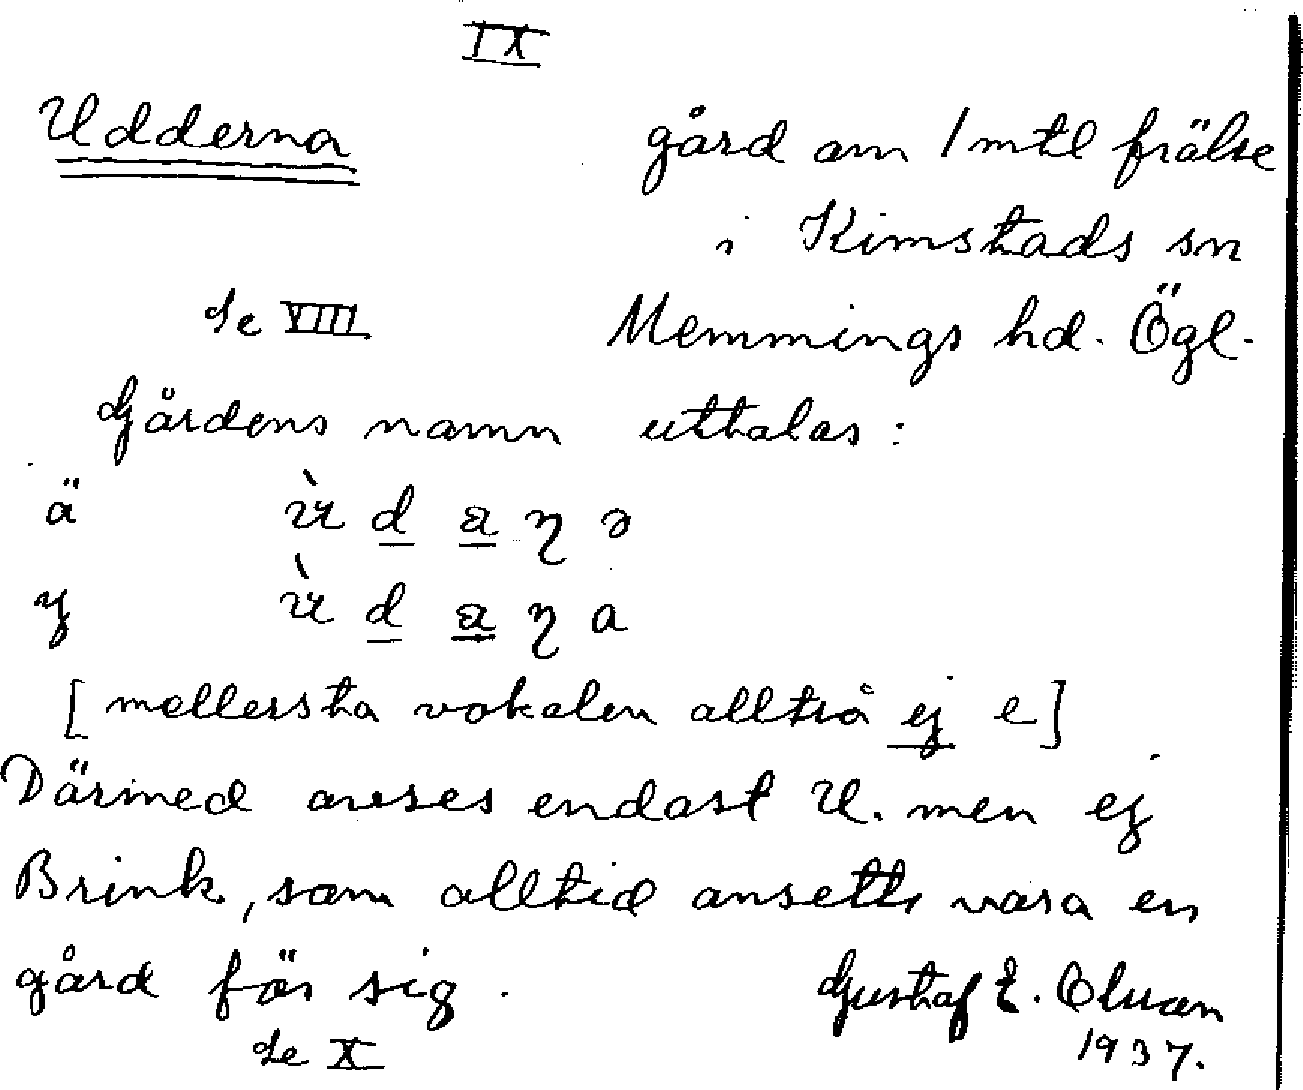 IX
Udderna gård om 1 mtl frälse
i Kimstads sn
Se VIII Memmings hd. Ögl.
Gårdens namn uttalas:
ä ù d a η ə
y ù d a η a
[mellersta vokalen alltså ej e]
Därmed avses endast U. men ej
Brink, som alltid ansetts vara en
gård för sig. Gustaf E.
Se X 1937.